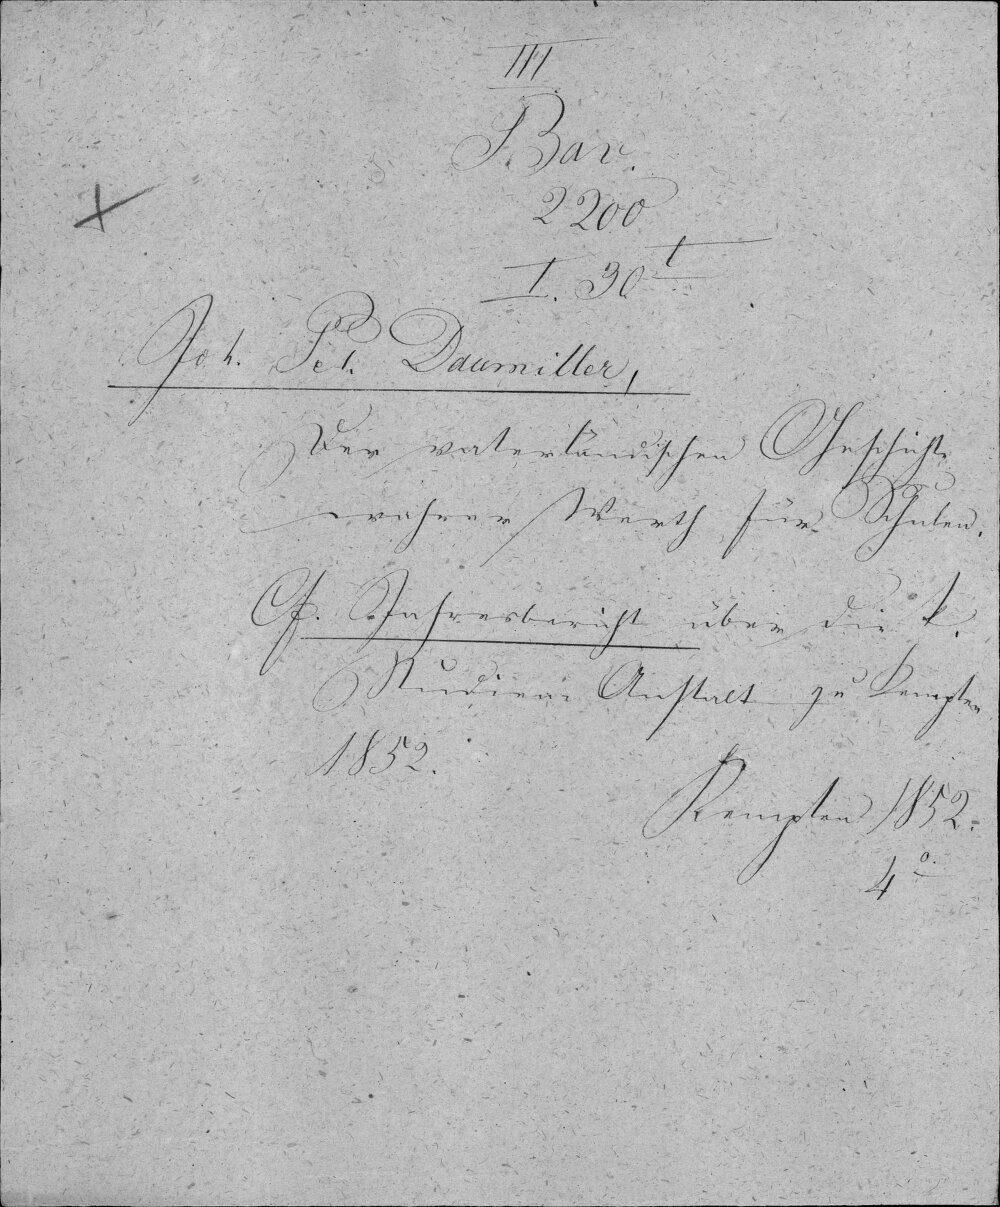 III
Bav.
2200
I. 30 t
Joh. Pet. Daumiller,
Der vaterländischen Geschichte
wahrer Werth für Schulen.
Cf. Jahresbericht über die k.
Studien-Anstalt zu Kempten
1852.
Kempten 1852.
4o.